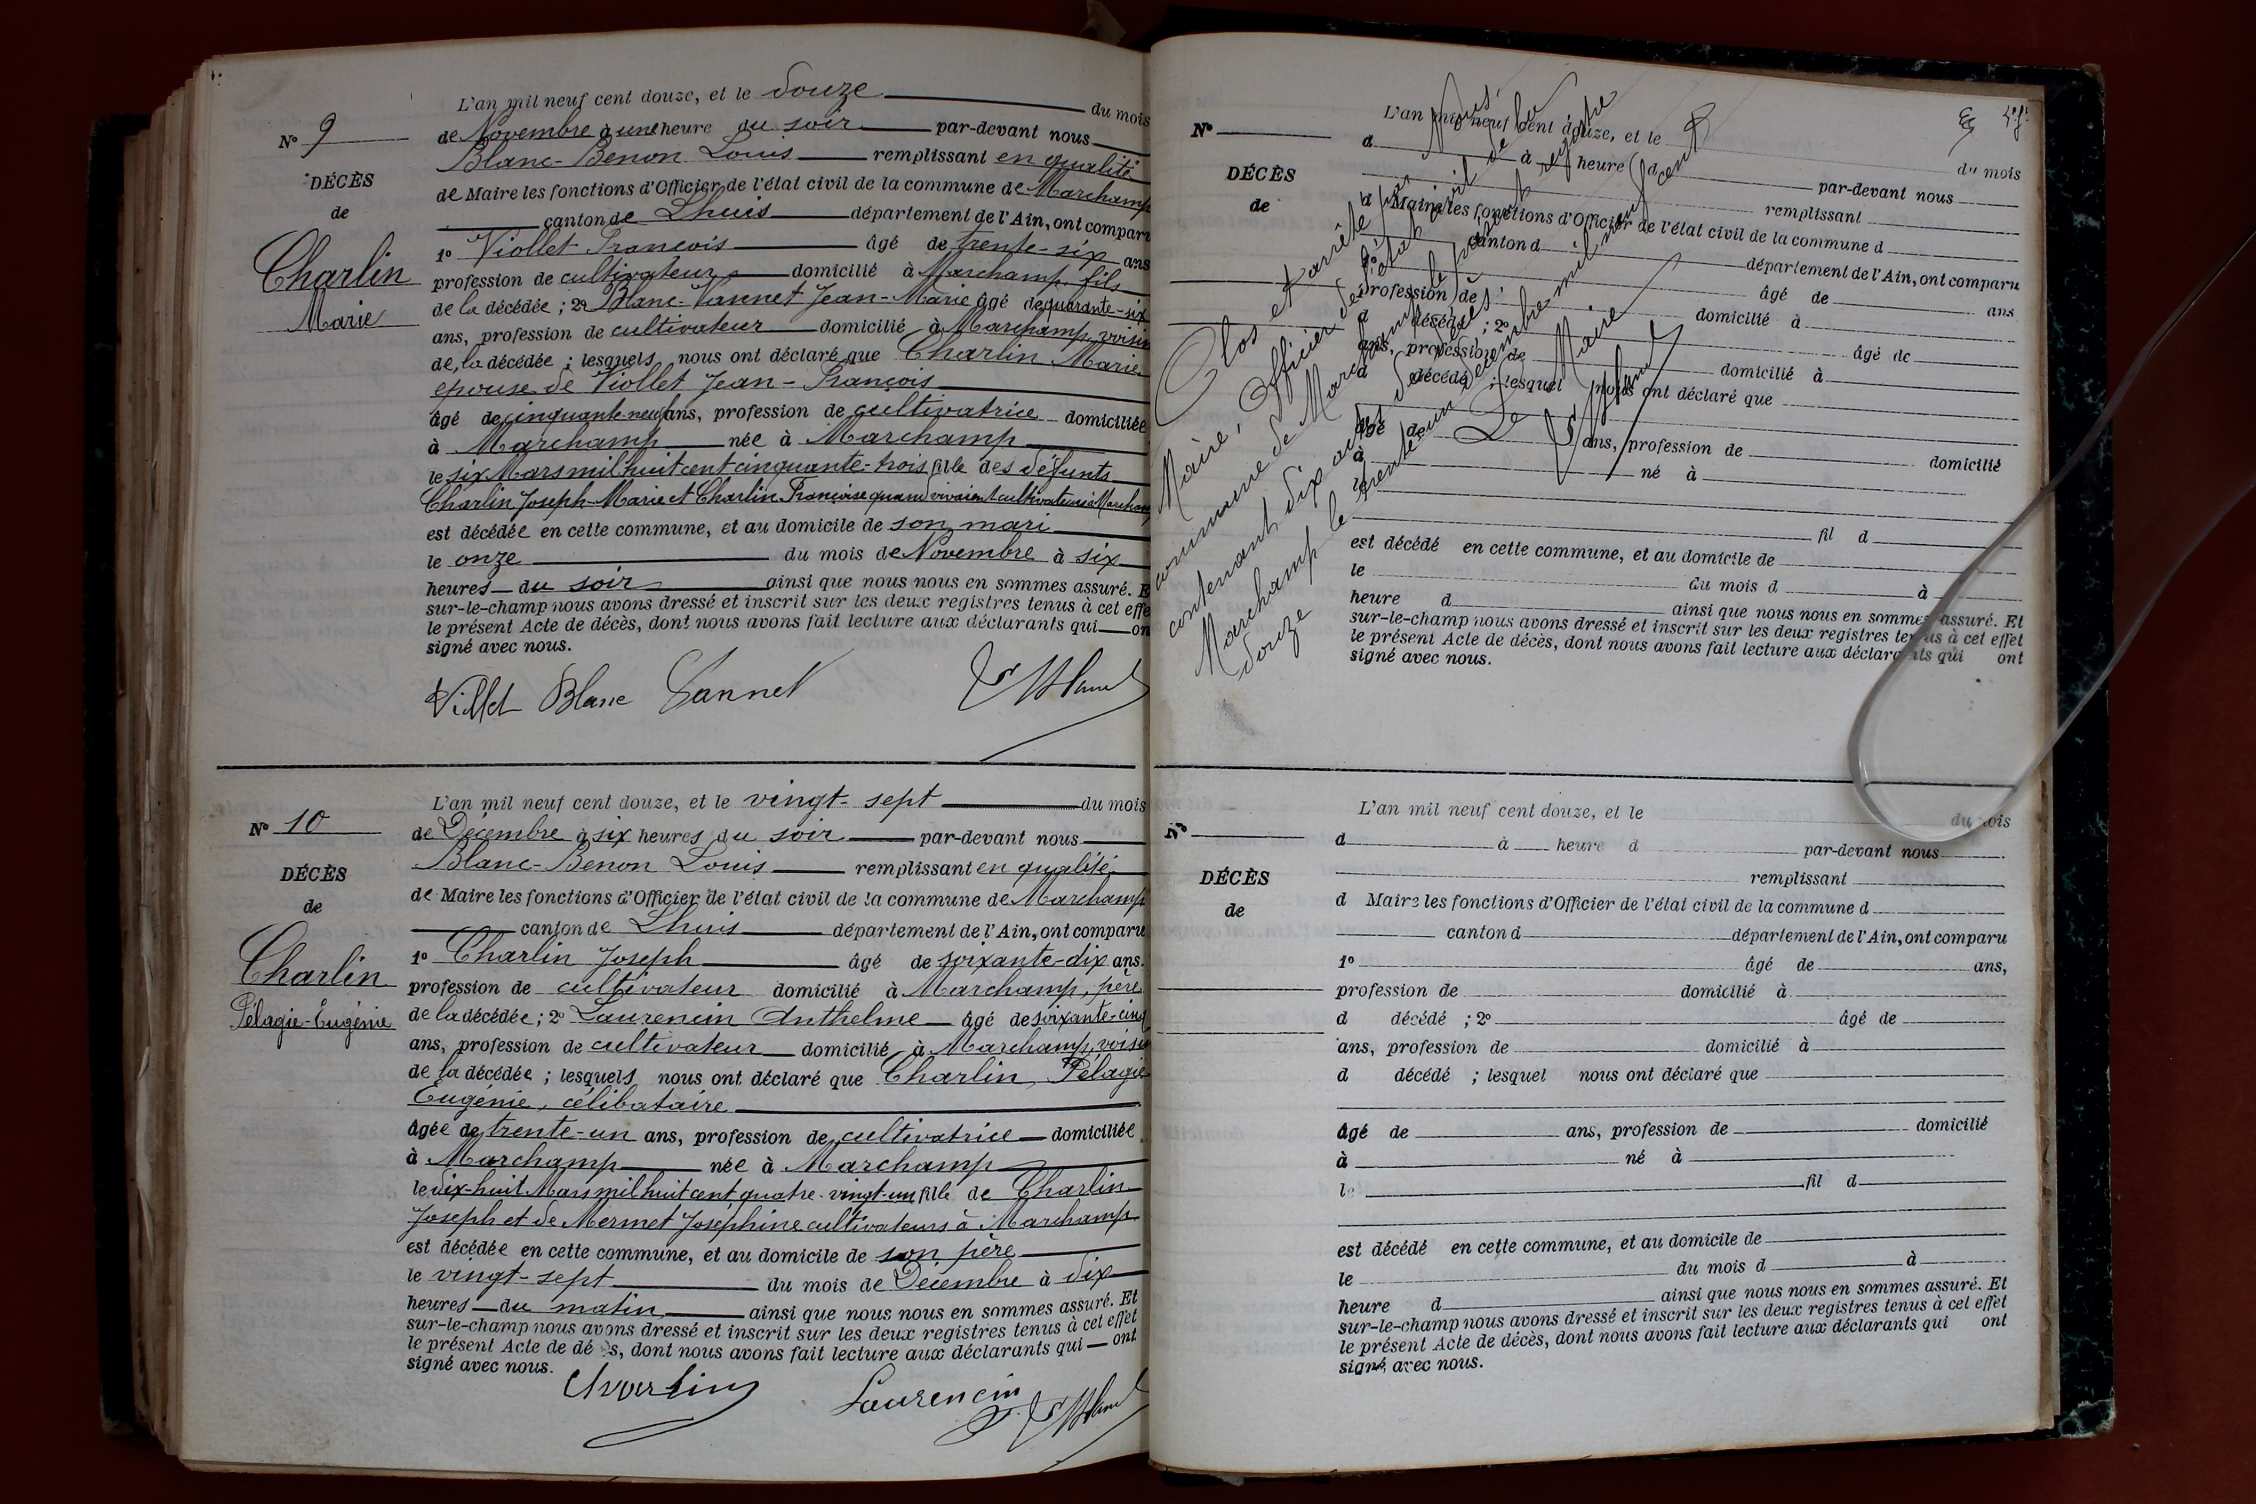 L'an mil neuf cent douze, et le douze du mois
N° 9
de Novembre à une heure du soir par-devant nous
Blanc-Benon Louis remplissant en qualité
DÉCÈS
de Maire les fonctions d'Officier de l'état civil de la commune de Marchamp
de
canton de Lhuis département de l'Ain, ont comparu
1° Viollet François âgé de trente-six ans
Charlin
profession de cultivateur domicilié à Marchamp, fils
Marie
de la décédée ; 2° Blanc-Vannet Jean-Marie âgé de quarante-six
ans, profession de cultivateur domicilié à Marchamp, voisin
de la décédée ; lesquels nous ont déclaré que Charlin Marie
épouse de Viollet Jean-François
âgé de cinquante-neuf ans, profession de cultivatrice domiciliée
à Marchamp née à Marchamp
le six Mars mil huit cent cinquante-trois fille des défunts
Charlin Joseph-Marie et Charlin Françoise quand vivaient cultivateurs à Marchamp
est décédée en cette commune, et au domicile de son mari
le onze du mois de Novembre à six
heures du soir ainsi que nous nous en sommes assuré. E
sur-le-champ nous avons dressé et inscrit sur les deux registres tenus à cet effe
le présent Acte de décès, dont nous avons fait lecture aux déclarants qui on
signé avec nous.
Viollet Blanc Vannet
L'an mil neuf cent douze, et le vingt-sept du mois
N° 10
de Décembre à six heures du soir par-devant nous
Blanc-Benon Louis remplissant en qualité
DÉCÈS
de Maire les fonctions d'Officier de l'état civil de la commune de Marchamp
de
canton de Lhuis département de l'Ain, ont comparu
1° Charlin Joseph âgé de soixante-dix ans.
Charlin
profession de cultivateur domicilié à Marchamp, père
Pélagie-Eugénie
de la décédée ; 2° Laurencin Anthelme âgé de soixante-cinq
ans, profession de cultivateur domicilié à Marchamp, voisin
de la décédée ; lesquels nous ont déclaré que Charlin Pélagie
Eugénie, célibataire
âgée de trente-un ans, profession de cultivatrice domiciliée
à Marchamp née à Marchamp
le dix-huit Mars mil huit cent quatre-vingt-un fille de Charlin
Joseph et de Mermet Joséphine cultivateurs à Marchamp
est décédée en cette commune, et au domicile de son père
le vingt-sept du mois de Décembre à dix
heures du matin ainsi que nous nous en sommes assuré. Et
sur-le-champ nous avons dressé et inscrit sur les deux registres tenus à cet effet
le présent Acte de décès, dont nous avons fait lecture aux déclarants qui ont
signé avec nous.
Charlin Laurencin
L'an mil neuf cent douze, et le
du mois
N°
d à heure d
par-devant nous
DÉCÈS
remplissant
de
d Maire les fonctions d'Officier de l'état civil de la commune d
canton d
département de l'Ain, ont comparu
âgé de ans
profession de domicilié à
d décédé ; 2° âgé de
ans, profession de domicilié à
d décédé ; lesquel nous ont déclaré que
âgé de ans, profession de domicilié
à né à
le
fil d
est décédé en cette commune, et au domicile de
le du mois d à
heure d ainsi que nous nous en sommes assuré. Et
sur-le-champ nous avons dressé et inscrit sur les deux registres tenus à cet effet
le présent Acte de décès, dont nous avons fait lecture aux déclarants qui ont
signé avec nous.
Clos et arrêté par Nous,
Maire, Officier de l'état civil de la
commune de Marchamp, le présent registre
contenant dix actes de décès.
Marchamp le trente-un décembre mil neuf cent
douze
Le Maire
L'an mil neuf cent douze, et le du mois
N°
d à heure d par-devant nous
remplissant
DÉCÈS
d Maire les fonctions d'Officier de l'état civil de la commune d
de
canton d département de l'Ain, ont comparu
1° âgé de ans,
profession de domicilié à
d décédé ; 2° âgé de
ans, profession de domicilié à
d décédé ; lesquel nous ont déclaré que
âgé de ans, profession de domicilié
à né à
le fil d
est décédé en cette commune, et au domicile de
le du mois d à
heure d ainsi que nous nous en sommes assuré. Et
sur-le-champ nous avons dressé et inscrit sur les deux registres tenus à cet effet
le présent Acte de décès, dont nous avons fait lecture aux déclarants qui ont
signé avec nous.